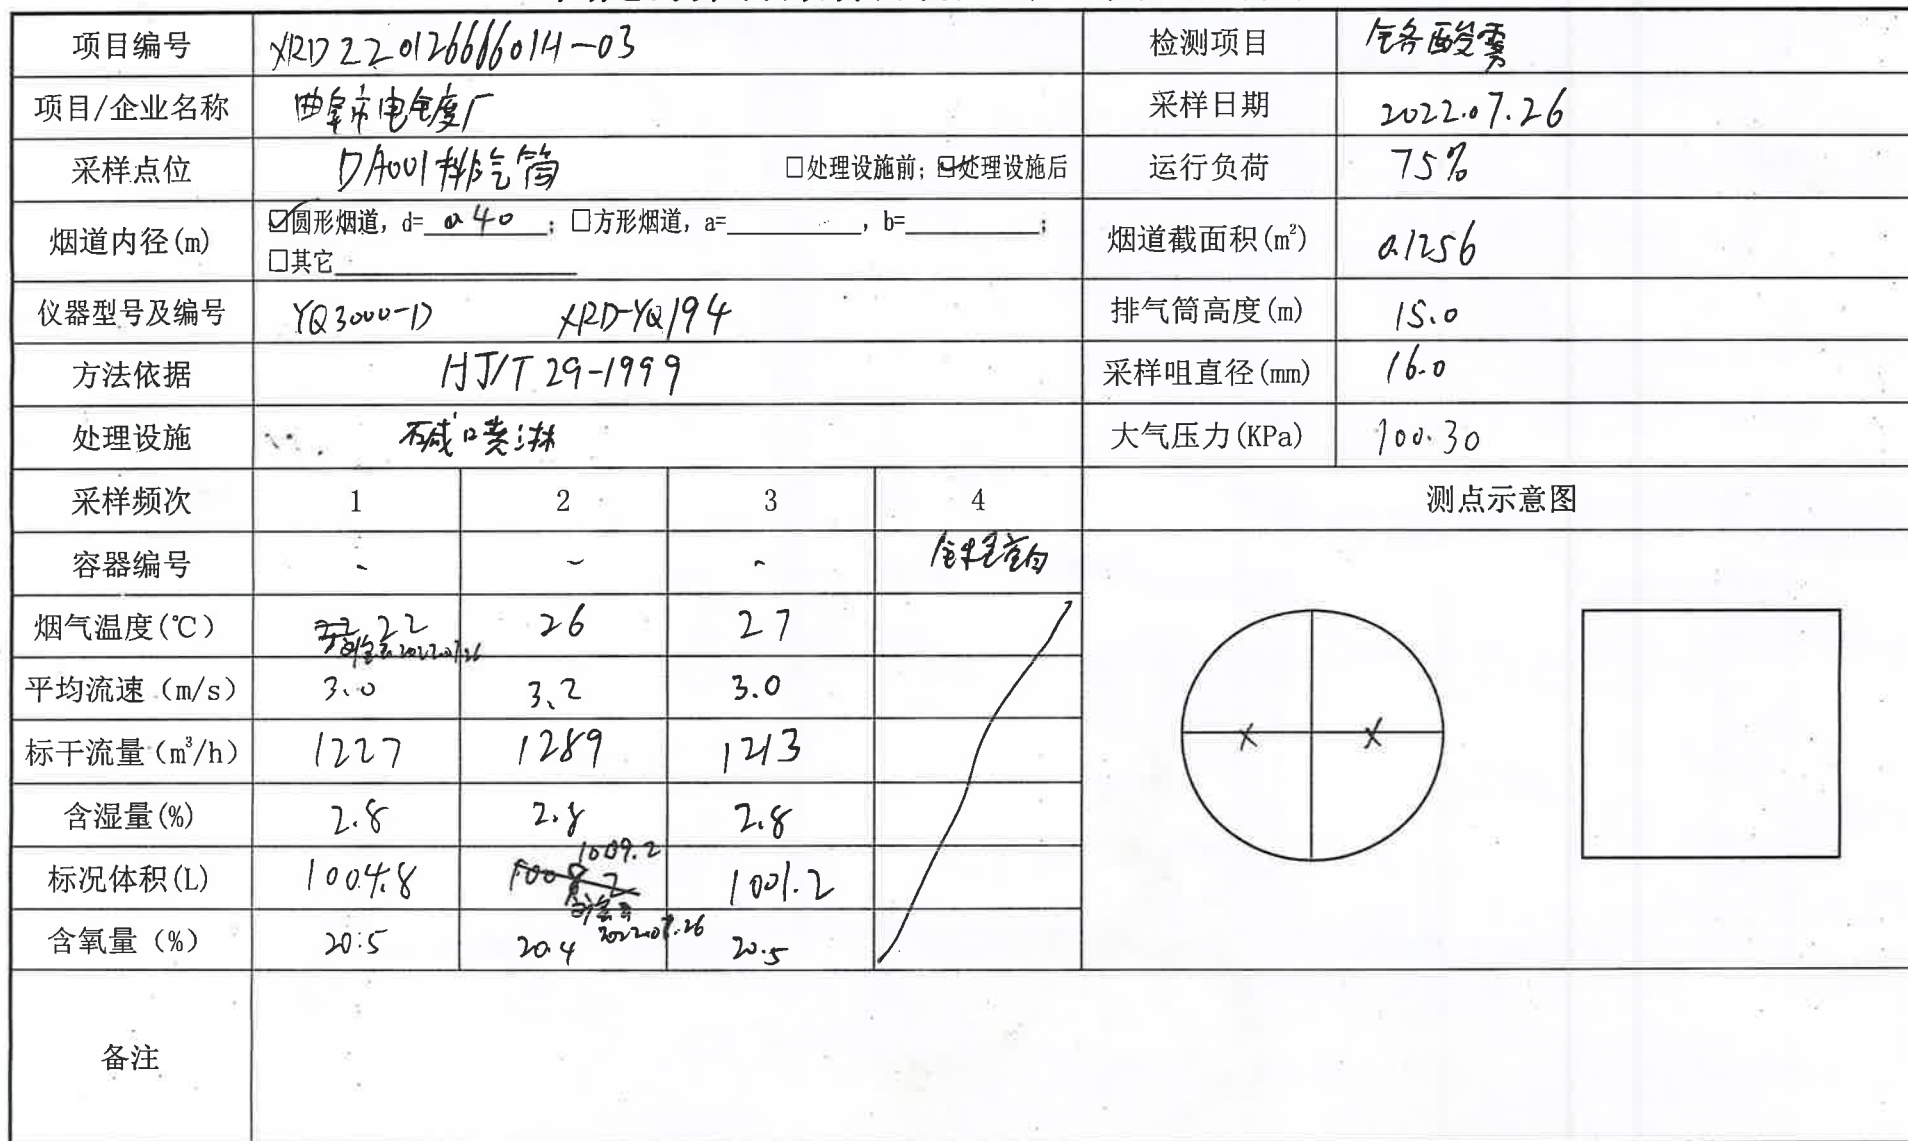 项目编号 XRD220126666014-03 检测项目 铬酸雾
项目/企业名称 曲阜市电镀厂 采样日期 2022.07.26
采样点位 DA001排气筒 □处理设施前; ☑处理设施后 运行负荷 75%
烟道内径(m) ☑圆形烟道, d= 0.40 ; □方形烟道, a= , b= ; 烟道截面积(m²) 0.1256
□其它
仪器型号及编号 YQ3000-D XRD-YQ194 排气筒高度(m) 15.0
方法依据 HJ/T 29-1999 采样咀直径(mm) 16.0
处理设施 碱喷淋 大气压力(KPa) 100.30
采样频次 1 2 3 4 测点示意图
容器编号 - - - 全程空白
烟气温度(℃) 22 26 27
2022.07.26
平均流速 (m/s) 3.0 3.2 3.0
标干流量 (m³/h) 1227 1289 1213
含湿量(%) 2.8 2.8 2.8
标况体积(L) 1004.8 1009.2 1001.2
2022.07.26
含氧量 (%) 20.5 20.4 20.5
备注